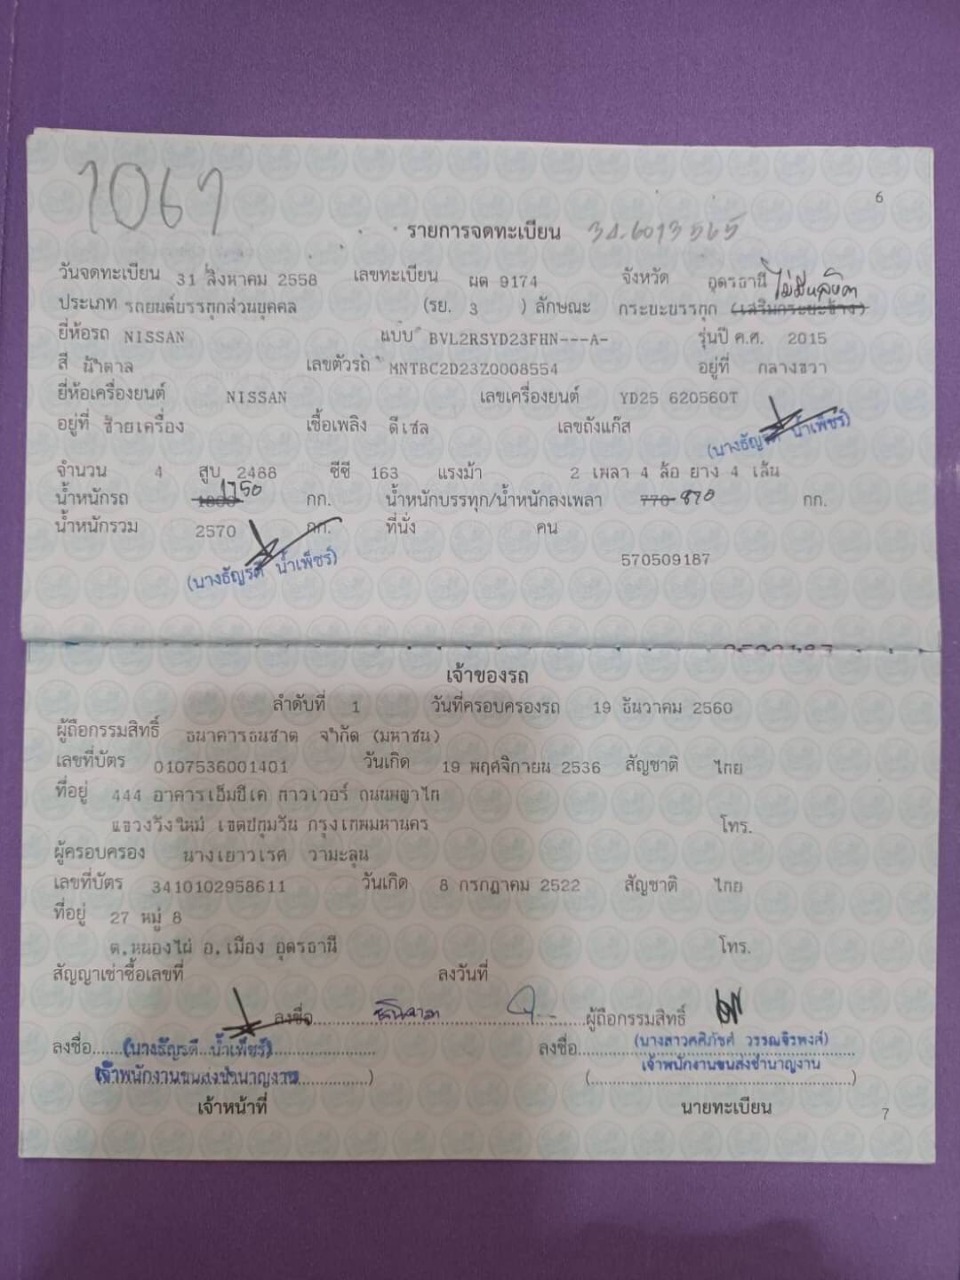 1067
6
รายการจดทะเบียน
วันจดทะเบียน 31 สิงหาคม 2558 เลขทะเบียน ผต 9174 จังหวัด อุดรธานี
ประเภท รถยนต์บรรทุกส่วนบุคคล (รย. 3 ) ลักษณะ กระบะบรรทุก (เสริมกระบะข้าง) ไม่มีหลังคา
ยี่ห้อรถ NISSAN แบบ BVL2RSYD23FHN---A- รุ่นปี ค.ศ. 2015
สี น้ำตาล เลขตัวรถ MNTBC2D23Z0008554 อยู่ที่ กลางขวา
ยี่ห้อเครื่องยนต์ NISSAN เลขเครื่องยนต์ YD25 620560T
อยู่ที่ ซ้ายเครื่อง เชื้อเพลิง ดีเซล เลขถังแก๊ส
(นางธัญรดี น้ำเพ็ชร์)
จำนวน 4 สูบ 2488 ซีซี 163 แรงม้า 2 เพลา 4 ล้อ ยาง 4 เส้น
น้ำหนักรถ 1800 1750 กก. น้ำหนักบรรทุก/น้ำหนักลงเพลา 770 820 กก.
น้ำหนักรวม 2570 กก. ที่นั่ง คน
(นางธัญรดี น้ำเพ็ชร์)
570509187
เจ้าของรถ
ลำดับที่ 1 วันที่ครอบครองรถ 19 ธันวาคม 2560
ผู้ถือกรรมสิทธิ์ ธนาคารธนชาต จำกัด (มหาชน)
เลขที่บัตร 0107536001401 วันเกิด 19 พฤศจิกายน 2536 สัญชาติ ไทย
ที่อยู่ 444 อาคารเอ็มบีเค ทาวเวอร์ ถนนพญาไท
แขวงวังใหม่ เขตปทุมวัน กรุงเทพมหานคร โทร.
ผู้ครอบครอง นางเยาวเรศ วามะลุน
เลขที่บัตร 3410102958611 วันเกิด 8 กรกฎาคม 2522 สัญชาติ ไทย
ที่อยู่ 27 หมู่ 8
ต.หนองไผ่ อ.เมือง อุดรธานี โทร.
สัญญาเช่าซื้อเลขที่ ลงวันที่
ลงชื่อ ผู้ถือกรรมสิทธิ์
ลงชื่อ (นางธัญรดี น้ำเพ็ชร์) ลงชื่อ (นางสาวศศิภัชศ์ วรรณจิรพงศ์)
เจ้าพนักงานขนส่งชำนาญงาน ) ( เจ้าพนักงานขนส่งชำนาญงาน )
เจ้าหน้าที่ นายทะเบียน
7